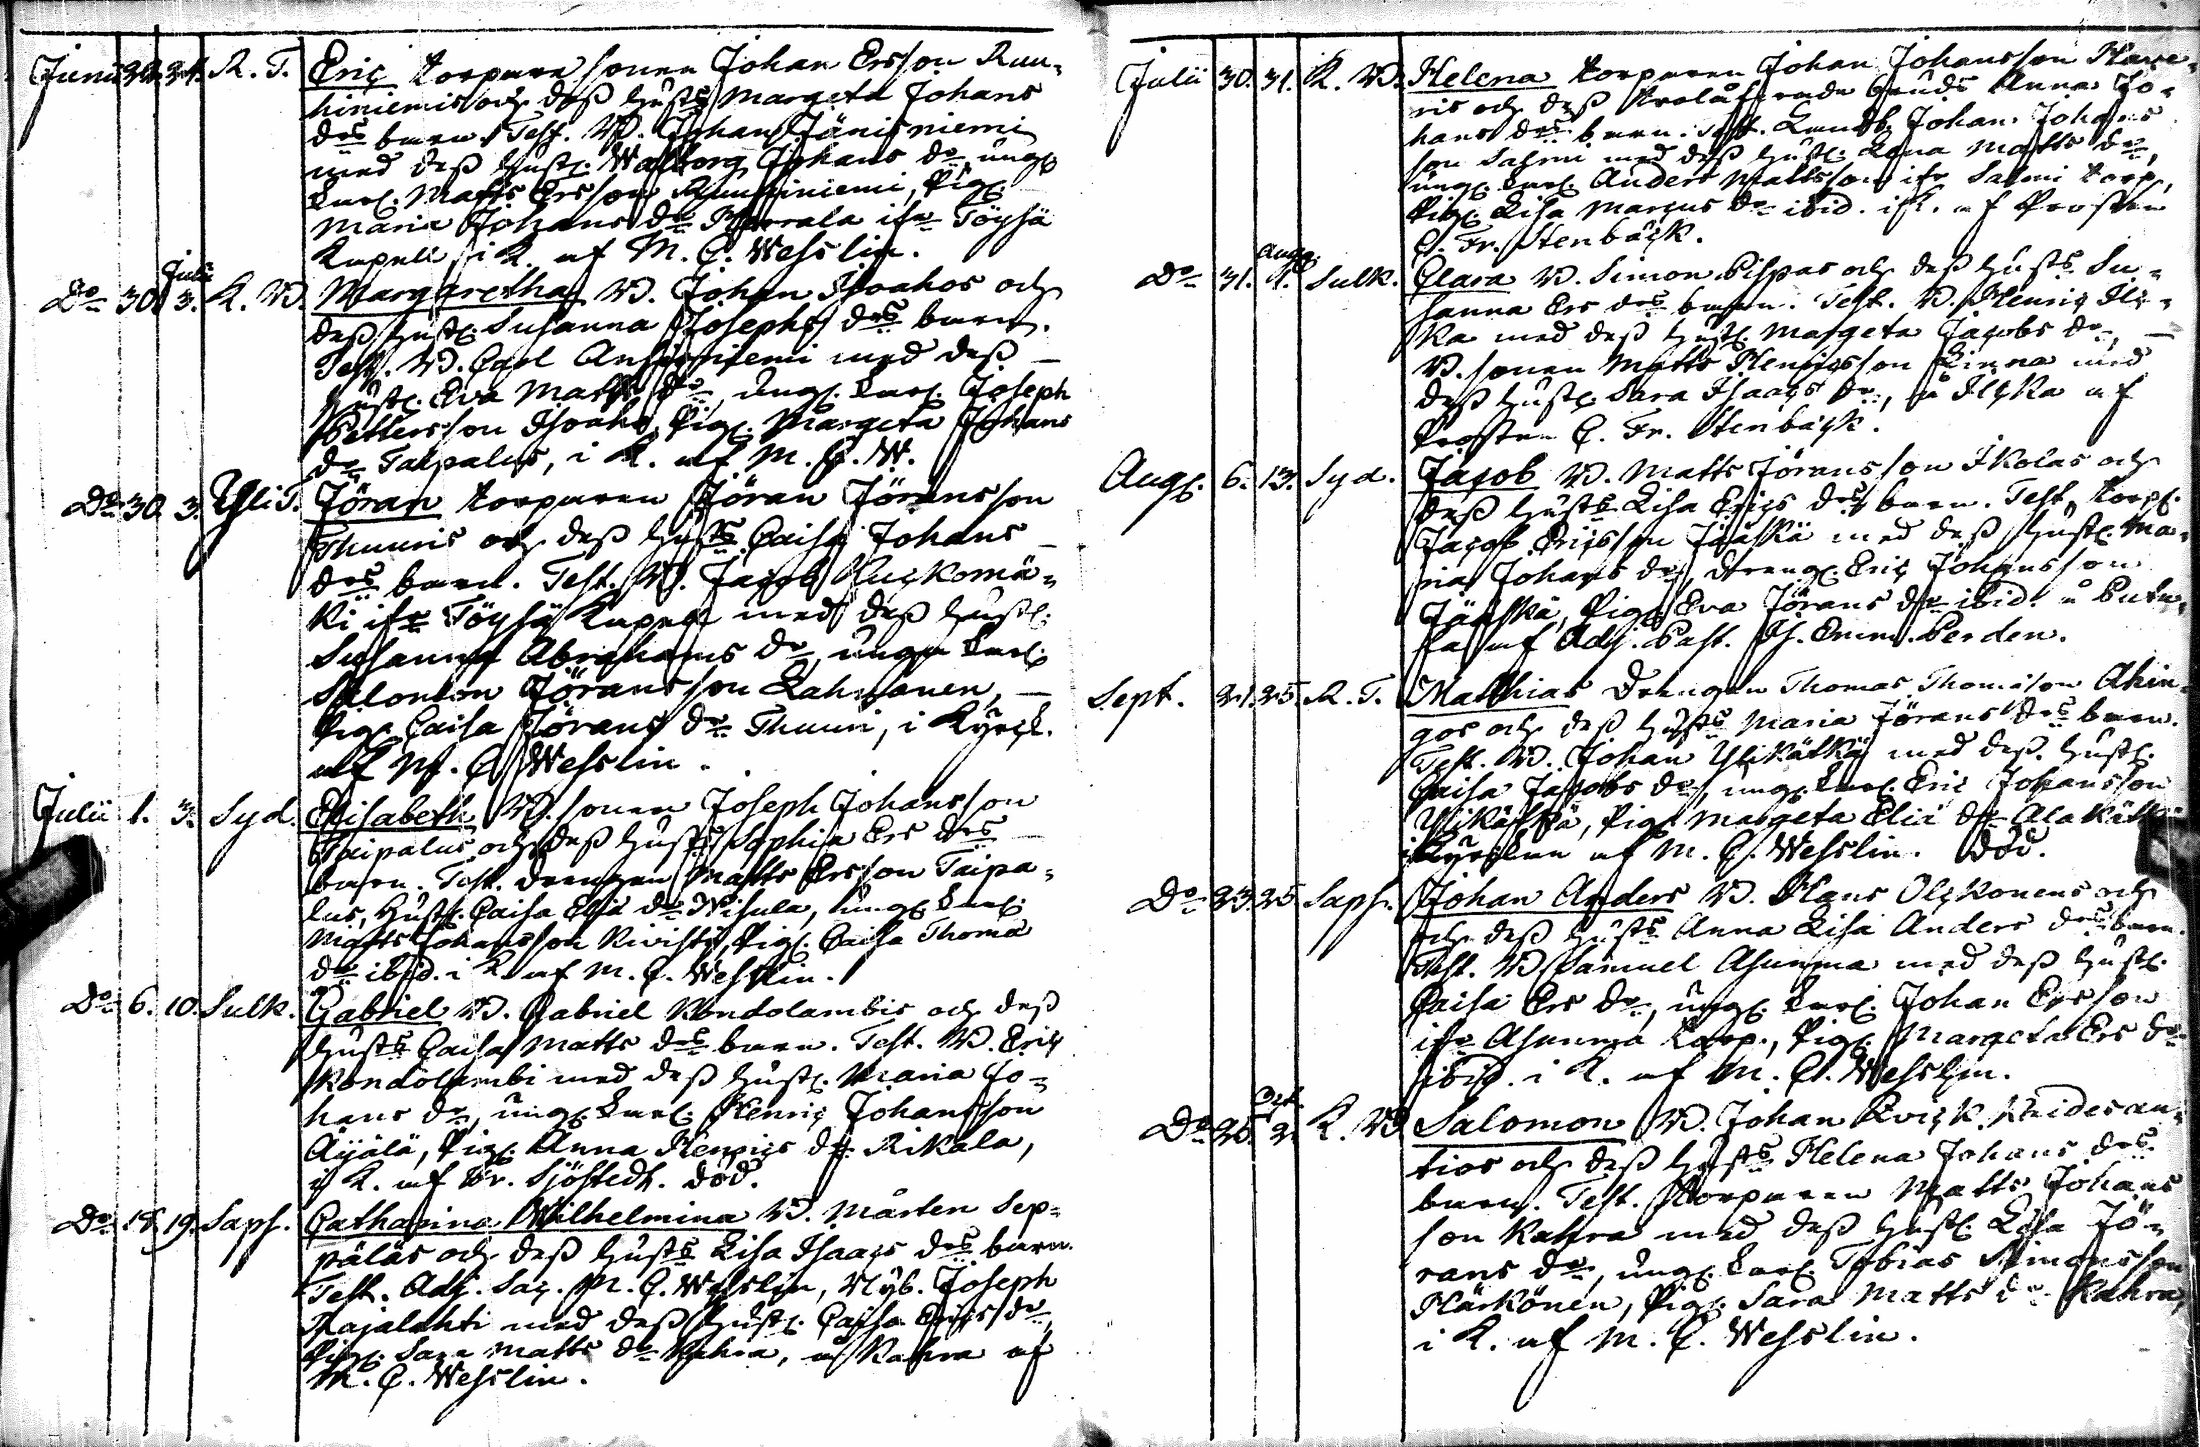 Junii 22. 24. R. T. Eric torparesonen Johan Ersson Ruu-
hiniemis och dess hust. Margeta Johans
drs barn. Test. B. Johan Jänisniemi
med dess hust. Walborg Johans dr, ung
karl. Matts Ersson Ruuhiniemi, Pig.
Maria Johans dr ifr Töysä
Kapell i K. af M. C. Wesslin.
Do 30. Julii 3. K. B. Margaretha B. Johan Isoahos och
dess hust. Susanna Josephs drs barn.
Test. B. Carl med dess
hust. Eva Matts dr, ung. karl. Joseph
Pettersson Isoaho, Pig. Margeta Johans
dr Taipalus, i K. af M. C. W.
Do 30. 3. Yli T. Jöran torparen Jöran Jöransson
Thuuris och dess hust. Caisa Johans
drs barn. Test. B. Jacob Ruckomä-
ki ifr Töysä Kapell med dess hust.
Susanna Abrahams dr, unga karl.
Salomon Jöransson Lahnanen,
Pig. Caisa Jörans dr Thuuri, i Kyrck.
af M. C. Wesslin.
Julii 1. 3. Syd. Elisabeth B. sonen Joseph Johansson
Taipalus och dess hust. Sophia Ers drs
barn. Test. drengen Matts Ersson Taipa-
lus, hust. Caisa Eliæ dr Nisula, ung. karl.
Matts Johansson Kivistö, Pig. Caisa Thomæ
dr ibid. i K. af M. C. Wesslin.
Do 6. 10. Sulk. Gabriel B. Gabriel Kondolambis och dess
hust. Caisa Matts drs barn. Test. B. Eric
Kondolambi med dess hust. Maria Jo-
hans dr, ung. karl. Henric Johansson
Äijälä, Pig. Anna Henrics dr Rikala,
i K. af Hr. Sjöstedt. död.
Do 18. 19. Saps. Catharina Wilhelmina B. Mårten Sep-
päläs och dess hust. Lisa Isaacs drs barn.
Test. Adj. Sac. M. C. Wesslin, Nyb. Joseph
Rajalahti med dess hust. Caisa Erics dr,
Pig. Sara Matts dr Kahra, å Kahra af
M. C. Wesslin.
Julii 30. 31. K. B. Helena torparen Johan Johansson
och dess Anna Jo-
hans drs barn. Test. Landb. Johan Johans
son Salmi med dess hust. Lena Matts dr,
ung. karl. Anders Mattsson ifr Salmi torp,
Pig. Lisa Marcus dr ibid. i K. af Prosten
C. Fr. Stenbäck.
Do 31. Aug. 1. Sulk. Clara B. Simon Pispas och dess hust. Su-
sanna Ers drs barn. Test. B. Henric Ilc-
ka med dess hust. Margeta Jacobs dr,
B. sonen Matts Henricsson med
dess hust. Sara Isaacs dr, å Ilcka af
Prosten C. Fr. Stenbäck.
Aug. 6. 13. Syd. Jacob B. Matts Jöransson Ikolas och
dess hust. Lisa Erics drs barn. Test. torp.
Jacob Ericsson Jääskä med dess hust. Ma-
ria Johans dr, dreng. Eric Johansson
Jääskä, Pig. Eva Jörans dr ibid. å
af Adj. Past. Is. Emm. Perden.
Sept. 21. 25. R. T. Matthias drengen Thomas Thomsson Ahin-
gos och dess hust. Maria Jörans drs barn.
Test. B. Johan Ylikätkä med dess hust.
Caisa Jacobs dr, ung. karl. Eric Johansson
Ylikätkä, Pig. Margeta Eliæ dr Alakätkä
i Kyrckan af M. C. Wesslin. död.
Do 23. 25. Saps. Johan Anders B. Hans Olckonens och
och dess hust. Anna Lisa Anders drs barn.
Test. B. Samuel Asunma med dess hust.
Caisa Ers dr, ung. karl. Johan Ersson
ifr Asunma torp, Pig. Margeta Ers dr
ibid. i K. af M. C. Wesslin.
Do 25. Oct. 2. K. B. Salomon B. Johan Qvick
och dess hust. Helena Johans drs
barn. Test. torparen Matts Johans
son Kahra med dess hust. Lisa Jö-
rans dr, ung. karl. Tobias Simonsson
Härkönen, Pig. Sara Matts dr Kahra,
i K. af M. C. Wesslin.